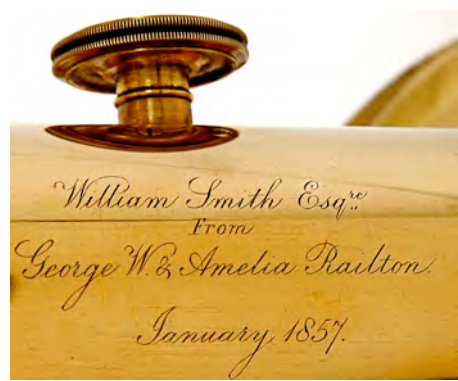 William Smith Esqre
From
George W. & Amelia Railton.
January 1857.